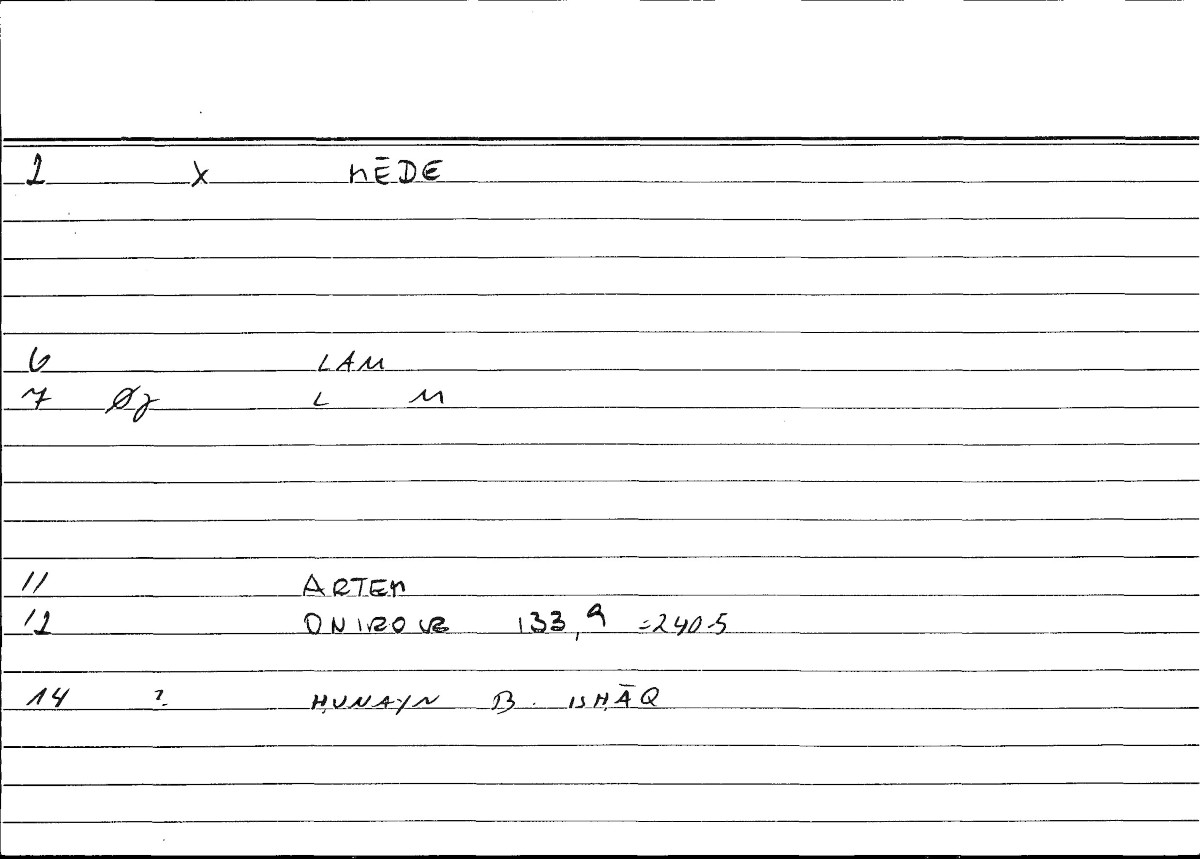 2 x MĒDE
6 LAM
7 Øz L M
11 ARTEM
12 ONIROCR 133,9 =240.5
14 ? ḤUNAYN B. ISḤĀQ